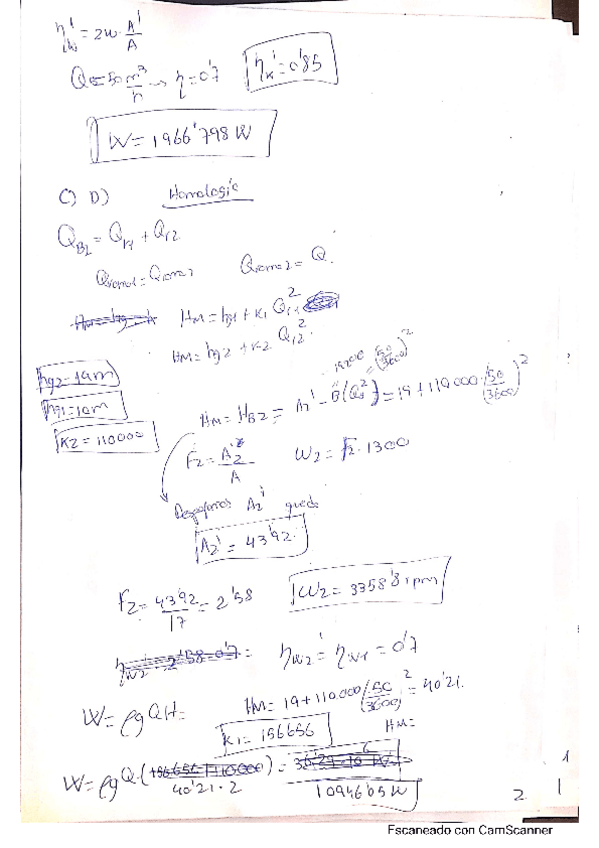 η'_W = 2W · A'/A
Q = 50 m³/h → η = 0'7 η_K' = 0'85
W = 1966'798 W
C) D) Homologic
Q_B2 = Q_i1 + Q_i2
Q_ramal = Q_rama1 Q_rama2 = Q.
H_M = hg1 + K1 Q_i1²
H_M = hg2 + K2 Q_i2².
hg2 = 19m
hg1 = 10m
K2 = 110000
H_M = H_B2 = A2' - B(Q²) = 19 + 110000 · (50/3600)²
F2 = A2'/A W2 = F2 · 1300
Despejamos A2' queda
A2' = 43'92.
F2 = 43'92/17 = 2'58 W2 = 3358'8 rpm
η_W2' = η_W1 = 0'7
H_M = 19 + 110.000 (50/3600)² = 40'21.
W = ρgQH =
K1 = 156656 H_M =
W = ρgQ · ( ) =
40'21 · 2 10946'05 W
2
1
1
Escaneado con CamScanner